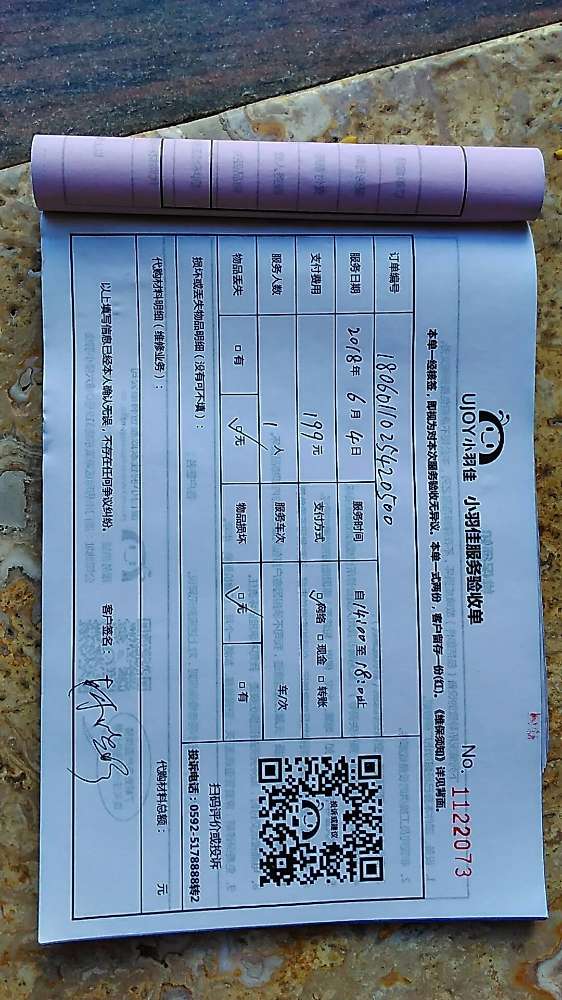 UJOY小羽佳 小羽佳服务验收单
No. 1122073
本单一经接签，即视为对本次服务验收无异议。本单一式两份，客户留存一份(红)。《维保须知》详见背面。
订单编号 1806011025420500
服务日期 2018年6月4日 服务时间 自14:00至18:00止
支付费用 199元 支付方式 ☑网络 □现金 □转账
服务人数 1人 服务车次 车/次
物品丢失 □有 ☑无 物品损坏 ☑无 □有
损坏或丢失物品明细（没有可不填）：
投诉或建议
扫码评价或投诉
投诉电话：0592-5178888转2
代购材料明细（维修业务）： 代购材料总额： 元
以上填写信息已经本人确认无误，不存在任何争议纠纷。 客户签名：